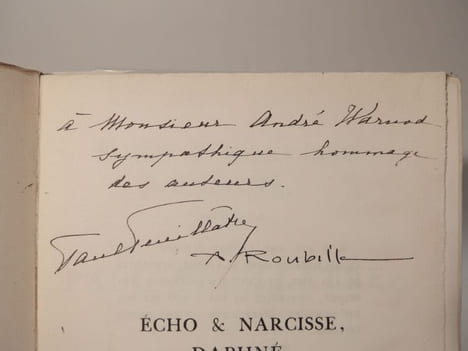 à Monsieur André Warnod
sympathique hommage
des auteurs.
Paul Feuillâtre
A. Roubille
ÉCHO & NARCISSE,
DAPHNÉ